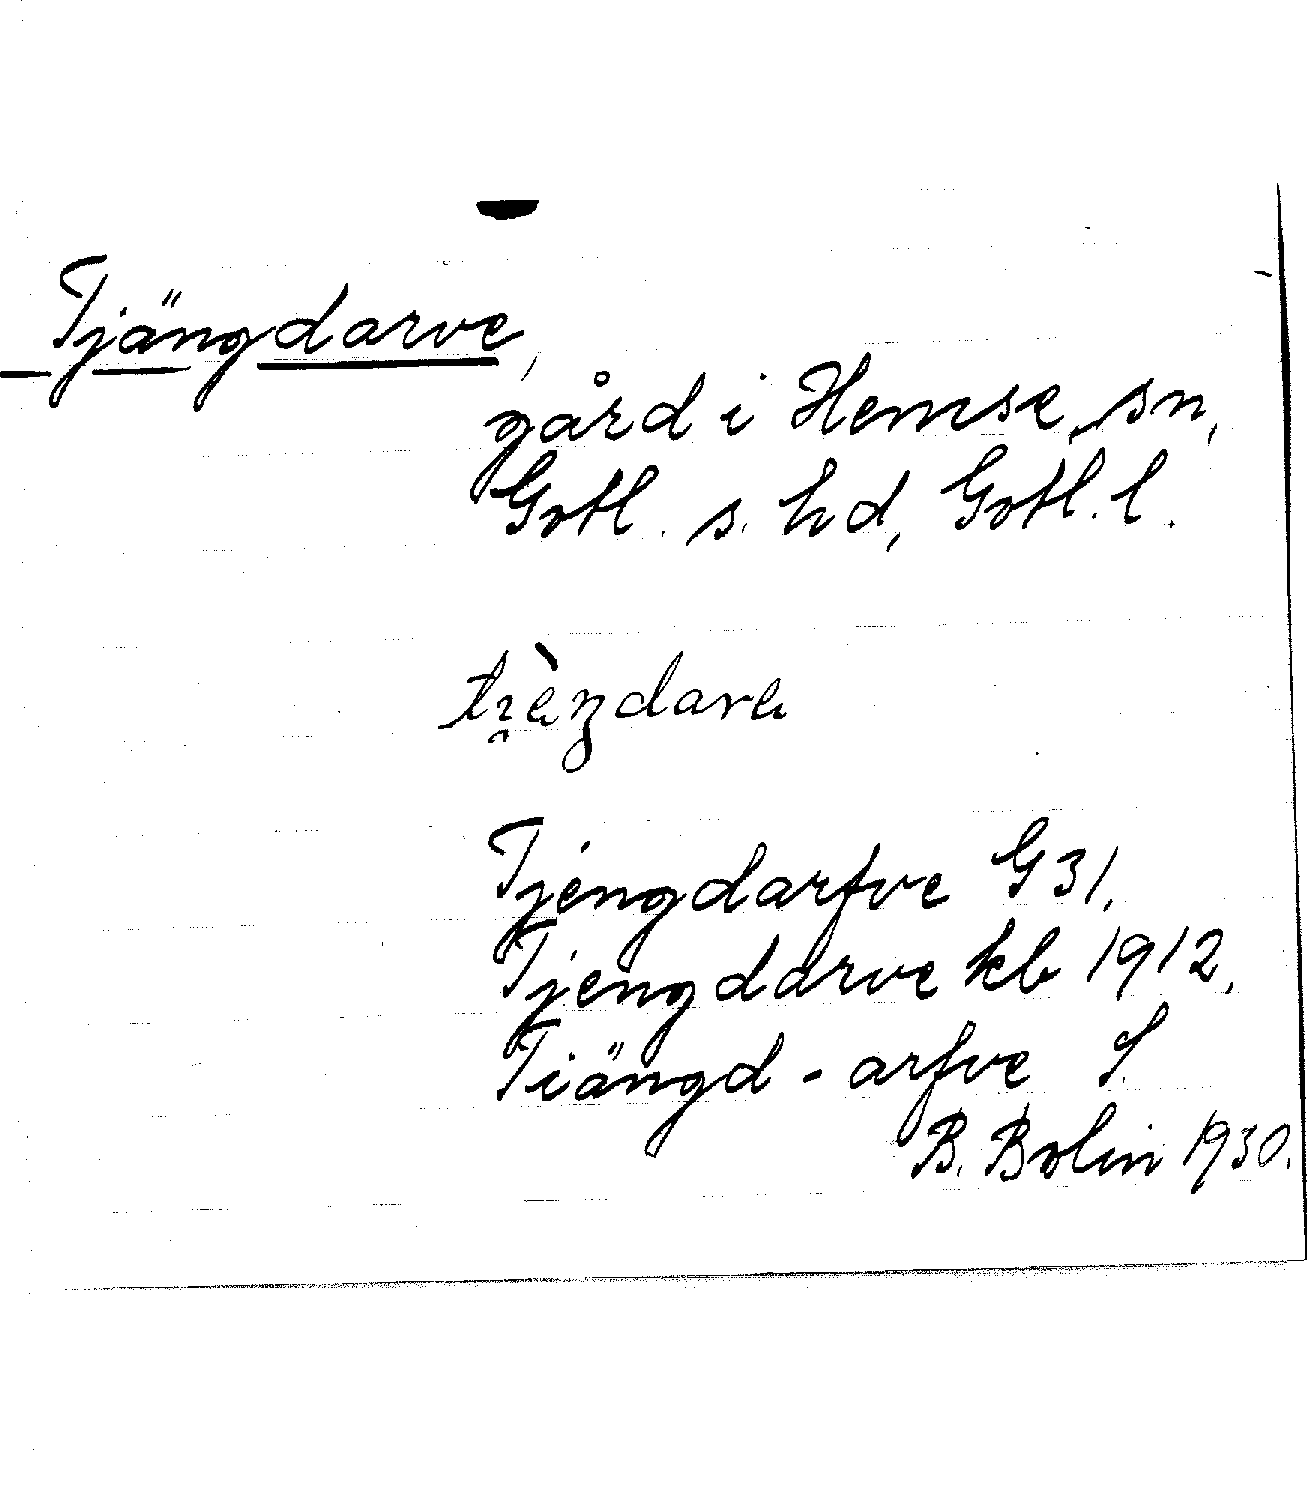 Tjängdarve,
gård i Hemse sn,
Gotl. s. hd, Gotl. l.
Tjengdarfve G 31,
Tjengdarve kb 1912,
Tiängd - arfve S
B. Bolin 1930.